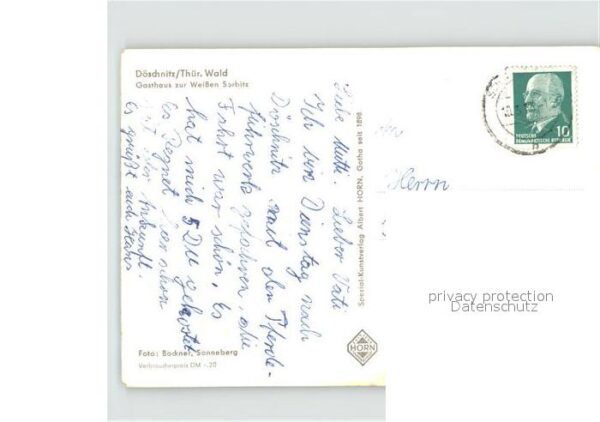 Döschnitz/Thür. Wald
Gasthaus zur Weißen Sorbitz
Liebe Mutti. Lieber Vati
Ich bin Dienstag nach
Döschnitz mit den Pferde-
fuhrwerk gefahren, die
Fahrt war schön, es
hat mich 5 DM gekostet
Es Regnet hier schon
seit der Ankunft.
Es grüßt euch Hans
Foto: Bockner, Sonneberg
Verbraucherpreis DM -.20
Spezial-Kunstverlag Albert HORN, Gotha seit 1898
HORN
DEUTSCHE
DEMOKRATISCHE REPUBLIK
10
An
Herrn
privacy protection
Datenschutz